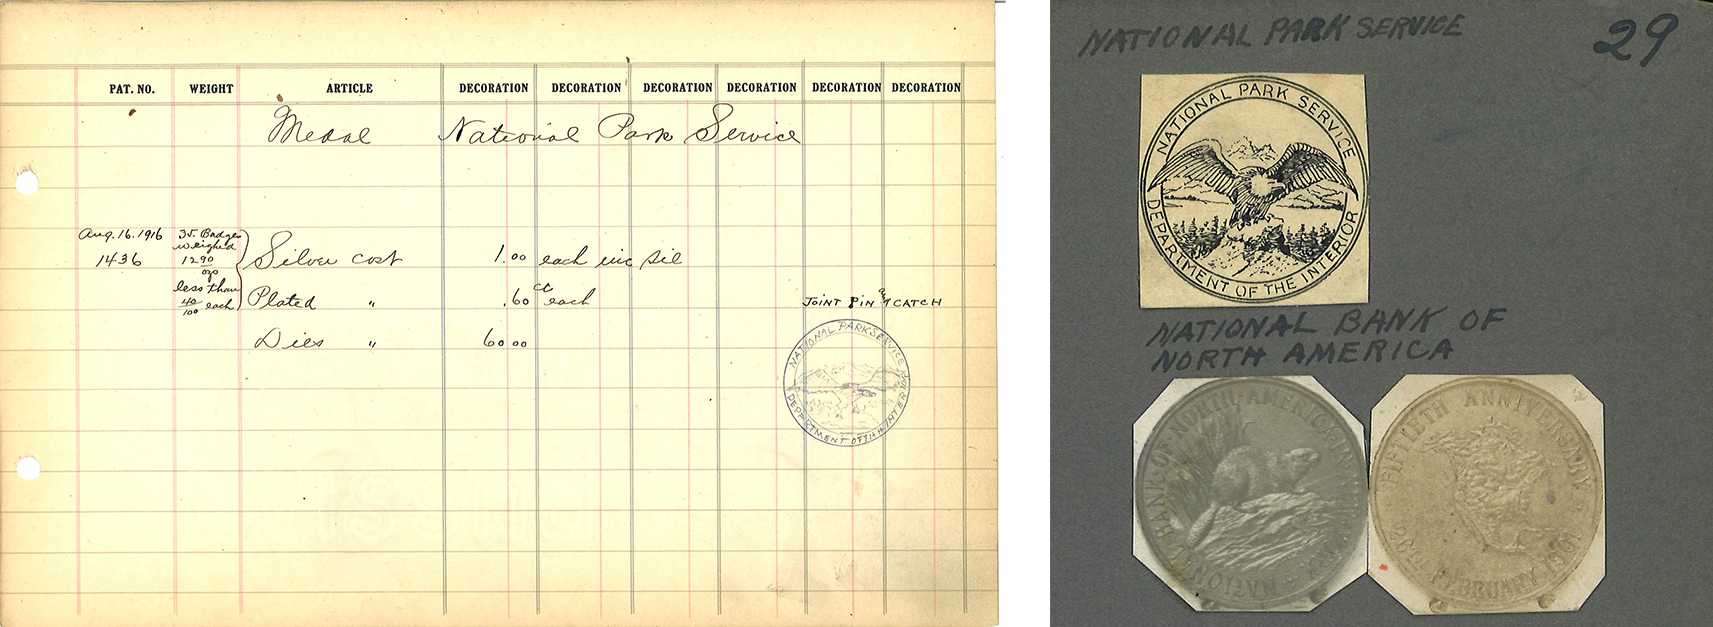 PAT. NO. WEIGHT ARTICLE DECORATION DECORATION DECORATION DECORATION DECORATION DECORATION
Medal National Park Service
Aug. 16. 1916 35 Badges
weighed
1436 12 90 Silver cost 1.00 each inc sil
ozs
less than
40/100 each Plated " .60 ct each JOINT PIN & CATCH
Dies " 60.00
NATIONAL PARK SERVICE
DEPARTMENT OF THE INTER
NATIONAL PARK SERVICE 29
NATIONAL PARK SERVICE
DEPARTMENT OF THE INTERIOR
NATIONAL BANK OF
NORTH AMERICA
NATIONAL BANK OF NORTH AMERICA
FIFTIETH ANNIVERSARY
FEBRUARY 1901